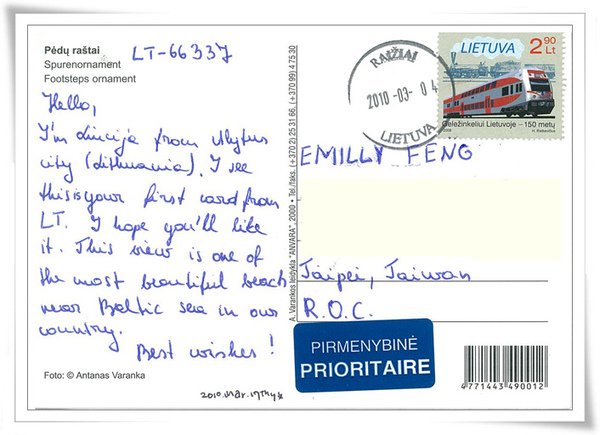 Pėdų raštai
Spurenornament
Footsteps ornament
LT-66337
Hello,
I'm Lineija from Alytus
city (Lithuania). I see
this is your first card from
LT. I hope you'll like
it. This view is one of
the most beautiful beach
near Baltic sea in our
country.
Best wishes!
Foto: © Antanas Varanka
2010.Mar.17Thy
A. Varankos leidykla "ANVARA", 2000 • Tel./faks. (+370 2) 25 31 66. (+370 99) 4 75 30
RAIŽIAI
2010-03-04
LIETUVA
LIETUVA
2.90
Lt
Geležinkeliui Lietuvoje – 150 metų
2008
EMILLY FENG
Taipei, Taiwan
R.O.C.
PIRMENYBINĖ
PRIORITAIRE
4771443490012